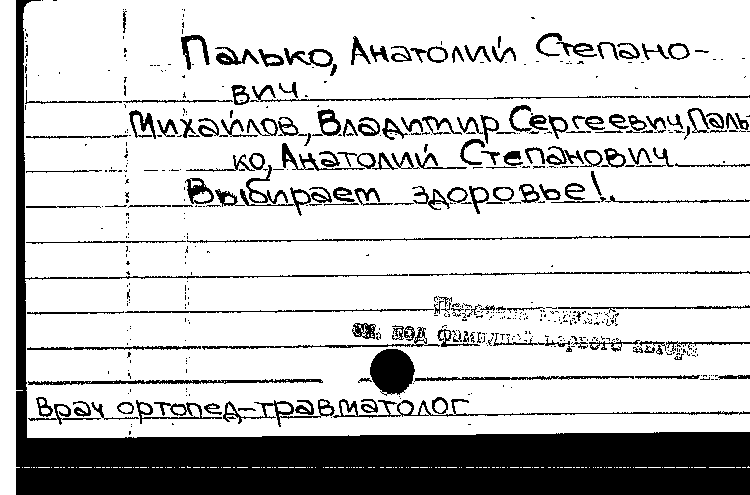 Палько, Анатолий Степано-
вич.
Михайлов, Владимир Сергеевич, Паль
ко, Анатолий Степанович
Выбирает здоровье!.
Перечень изданий
см. под фамилией первого автора
Врач ортопед-травматолог